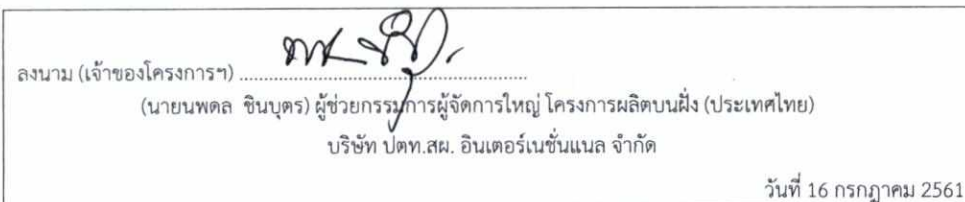 ลงนาม (เจ้าของโครงการฯ) ............................................................
(นายนพดล ชินบุตร) ผู้ช่วยกรรมการผู้จัดการใหญ่ โครงการผลิตบนฝั่ง (ประเทศไทย)
บริษัท ปตท.สผ. อินเตอร์เนชั่นแนล จำกัด
วันที่ 16 กรกฎาคม 2561